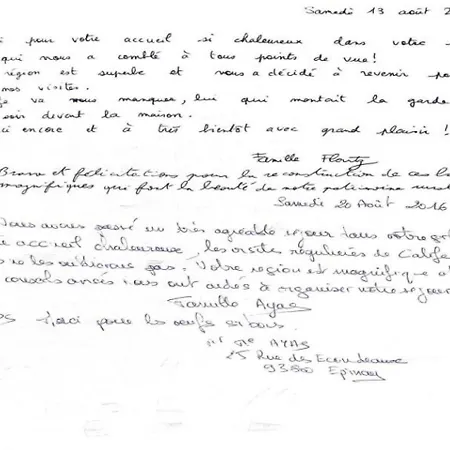 Samedi 13 août 2
i pour votre accueil si chaleureux dans votre
qui nous a comblé à tous points de vue!
région est superbe et nous a décidé à revenir po
nos visites.
va nous manquer, lui qui montait la garde
soir devant la maison.
ci encore et à très bientôt avec grand plaisir!
Famille
Bravo et félicitations pour la reconstruction de ces
magnifiques qui font la beauté de notre patrimoine rural
Samedi 20 Août 2016
Nous avons passé un très agréable séjour dans votre
accueil chaleureux, les visites régulières de
les oublierons pas. Votre région est magnifique et
conseils avisés nous ont aidés à organiser notre séjour
Famille Ayas
PS Merci pour les oeufs si bons.
AYAS
25 Rue des Econdeaux
93800 Epinay